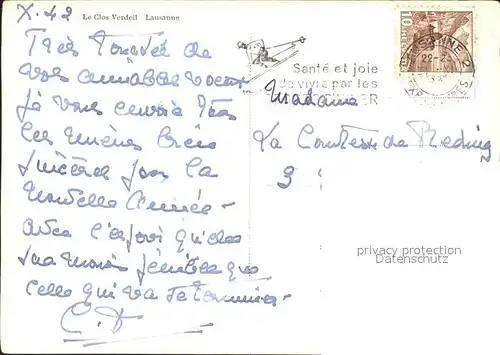 X. 42
Le Clos Verdeil Lausanne
Très touchée de
vos aimables voeux
je vous envoie tous
les miens bien
sincères pour la
nouvelle année -
avec l'espoir qu'elle
sera moins pénible que
celle qui va se terminer -
C. D
Santé et joie
de vivre par les
Madame
La Comtesse de Reding
3
10
LAUSANNE 2
22
privacy protection
Datenschutz